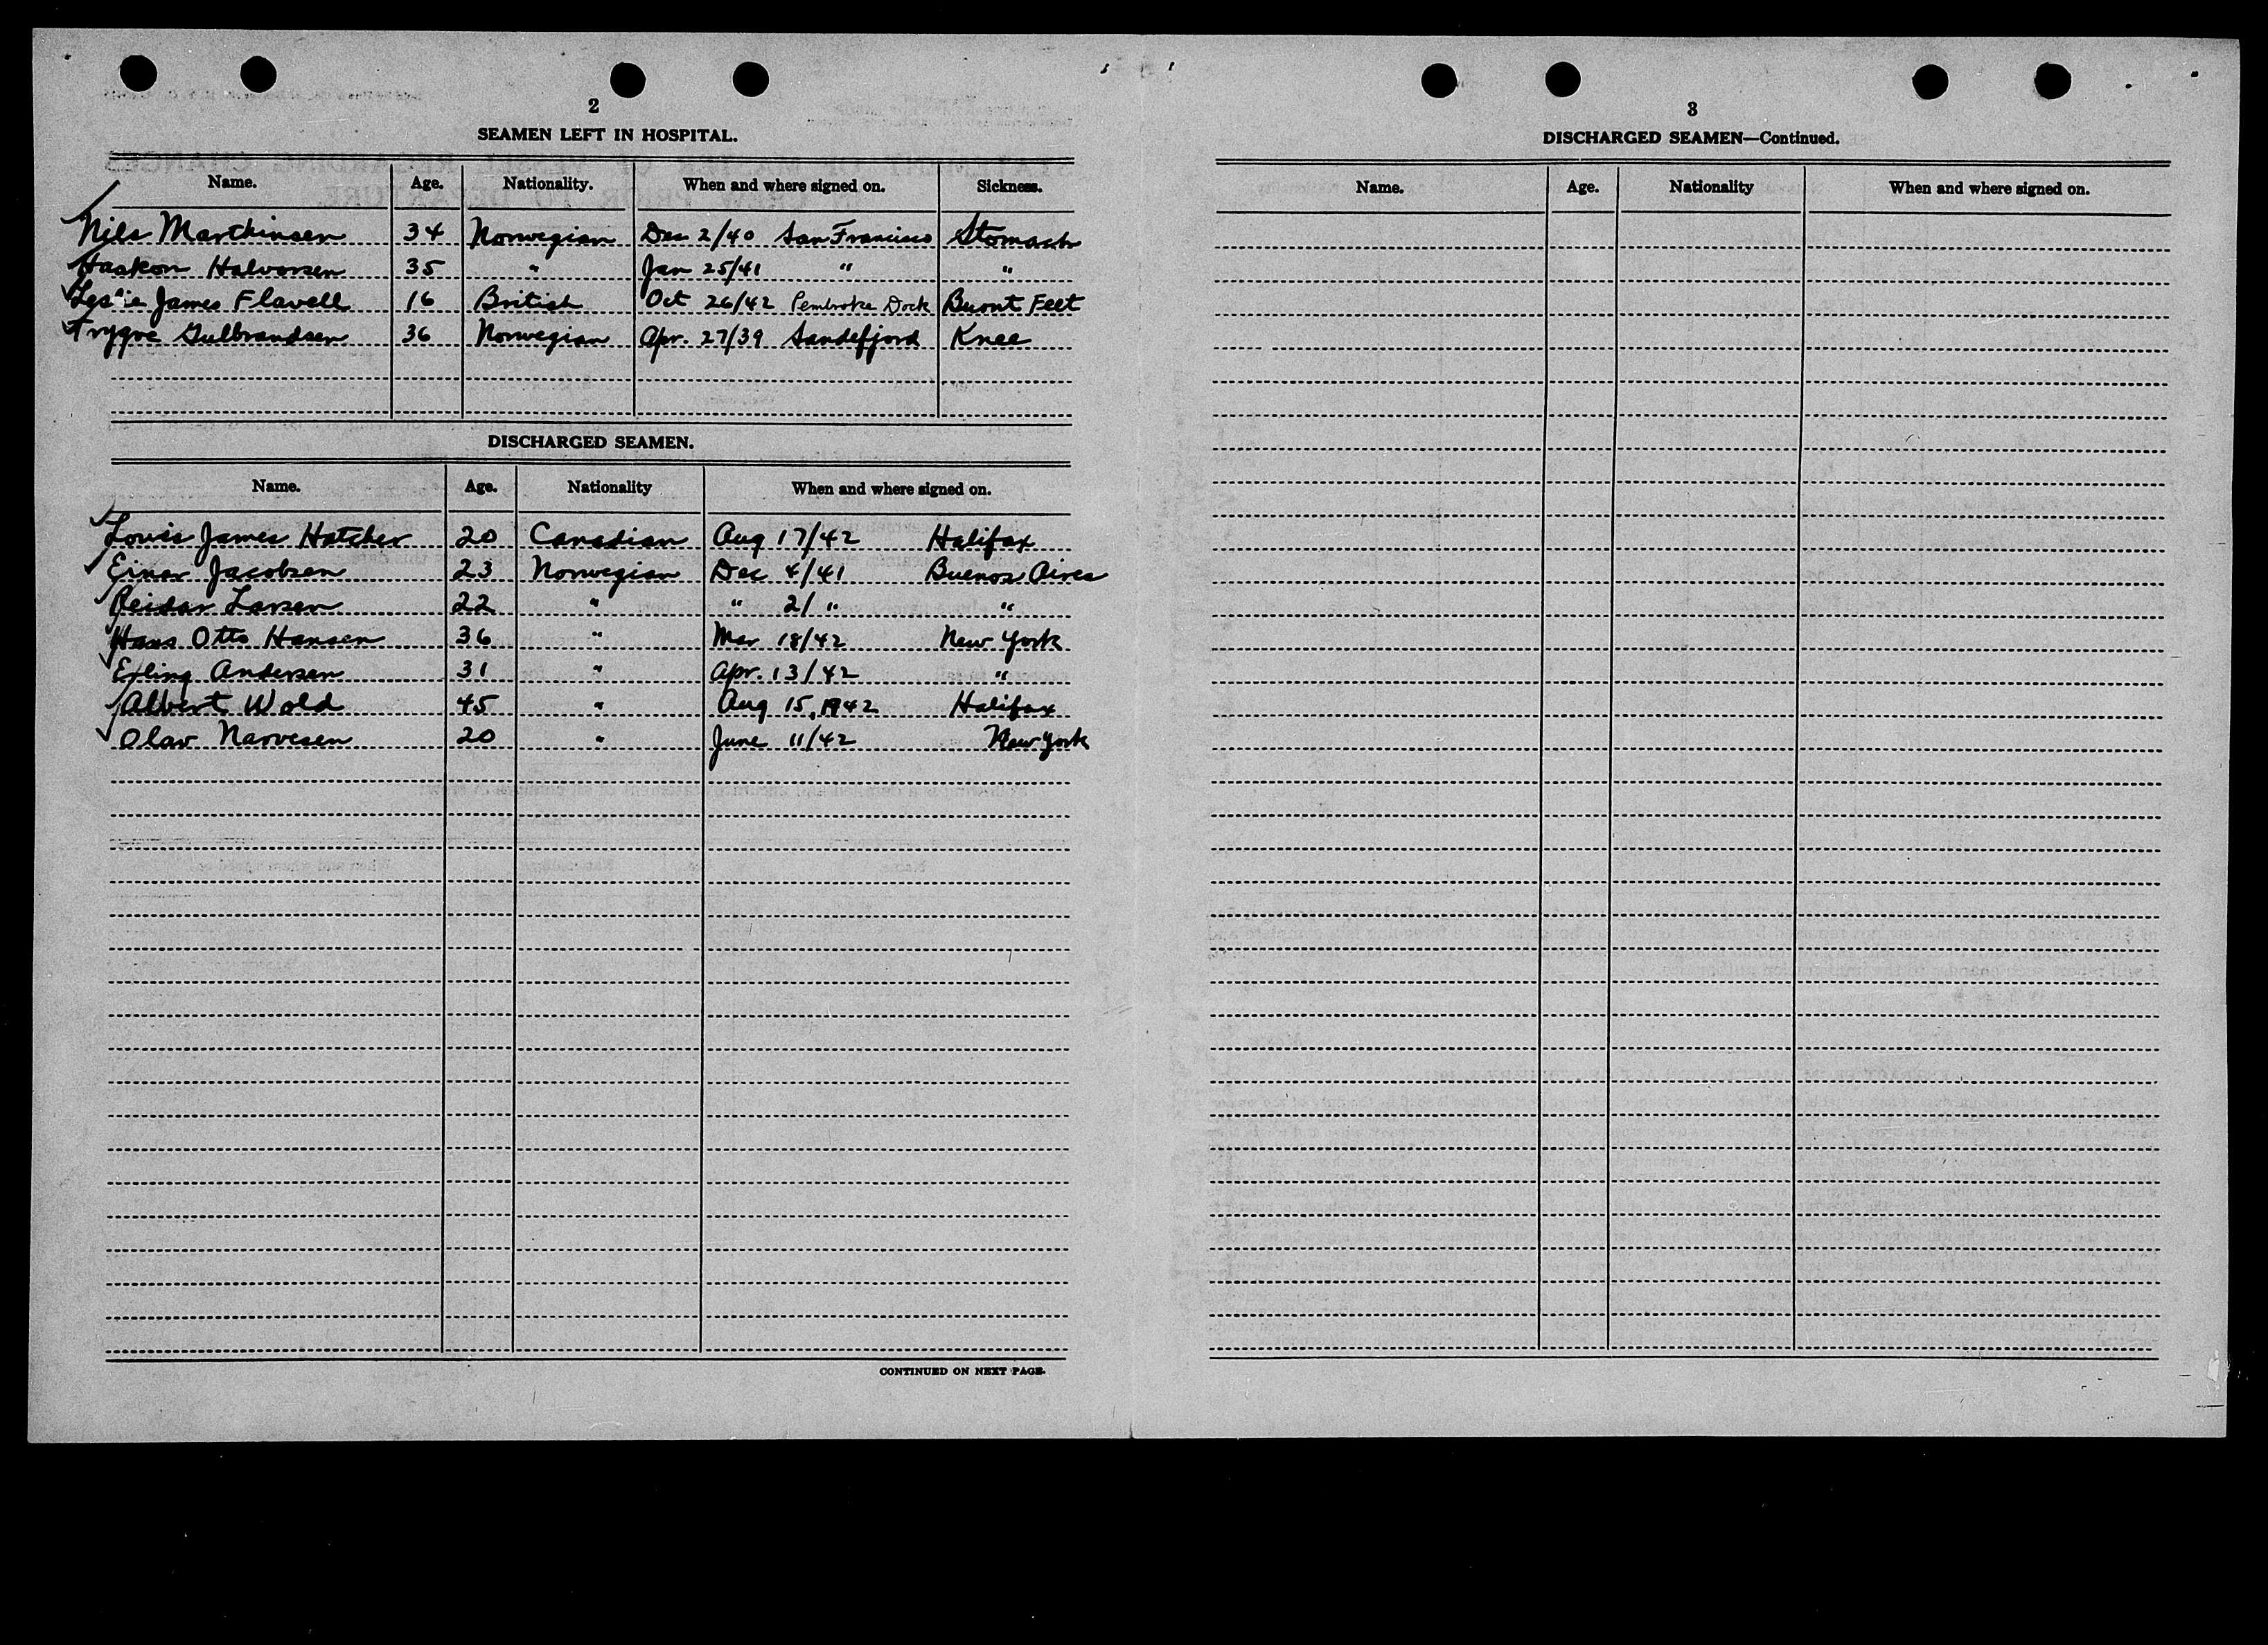 2
SEAMEN LEFT IN HOSPITAL.
Name. Age. Nationality. When and where signed on. Sickness.
Nils Marthinsen 34 Norwegian Dec 2/40 San Francisco Stomach
Haakon Halvorsen 35 " Jan 25/41 " "
Leslie James Flavell 16 British Oct 26/42 Pembroke Dock Burnt Feet
Trygve Gulbrandsen 36 Norwegian Apr. 27/39 Sandefjord Knee
DISCHARGED SEAMEN.
Name. Age. Nationality When and where signed on.
Louis James Hatcher 20 Canadian Aug 17/42 Halifax
Einar Jacobsen 23 Norwegian Dec 4/41 Buenos Aires
Reidar Larsen 22 " " 2/ " "
Hans Otto Hansen 36 " Mar 18/42 New York
Erling Andersen 31 " Apr. 13/42 "
Albert Wold 45 " Aug 15, 1942 Halifax
Olav Narvesen 20 " June 11/42 New York
CONTINUED ON NEXT PAGE.
3
DISCHARGED SEAMEN—Continued.
Name. Age. Nationality When and where signed on.